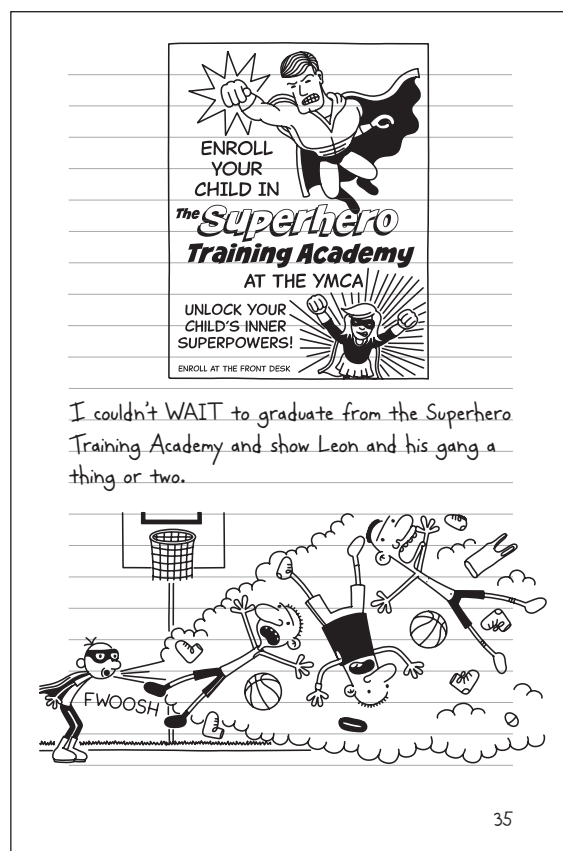 ENROLL
YOUR
CHILD IN
The Superhero
Training Academy
AT THE YMCA
UNLOCK YOUR
CHILD'S INNER
SUPERPOWERS!
ENROLL AT THE FRONT DESK
I couldn't WAIT to graduate from the Superhero
Training Academy and show Leon and his gang a
thing or two.
FWOOSH
35